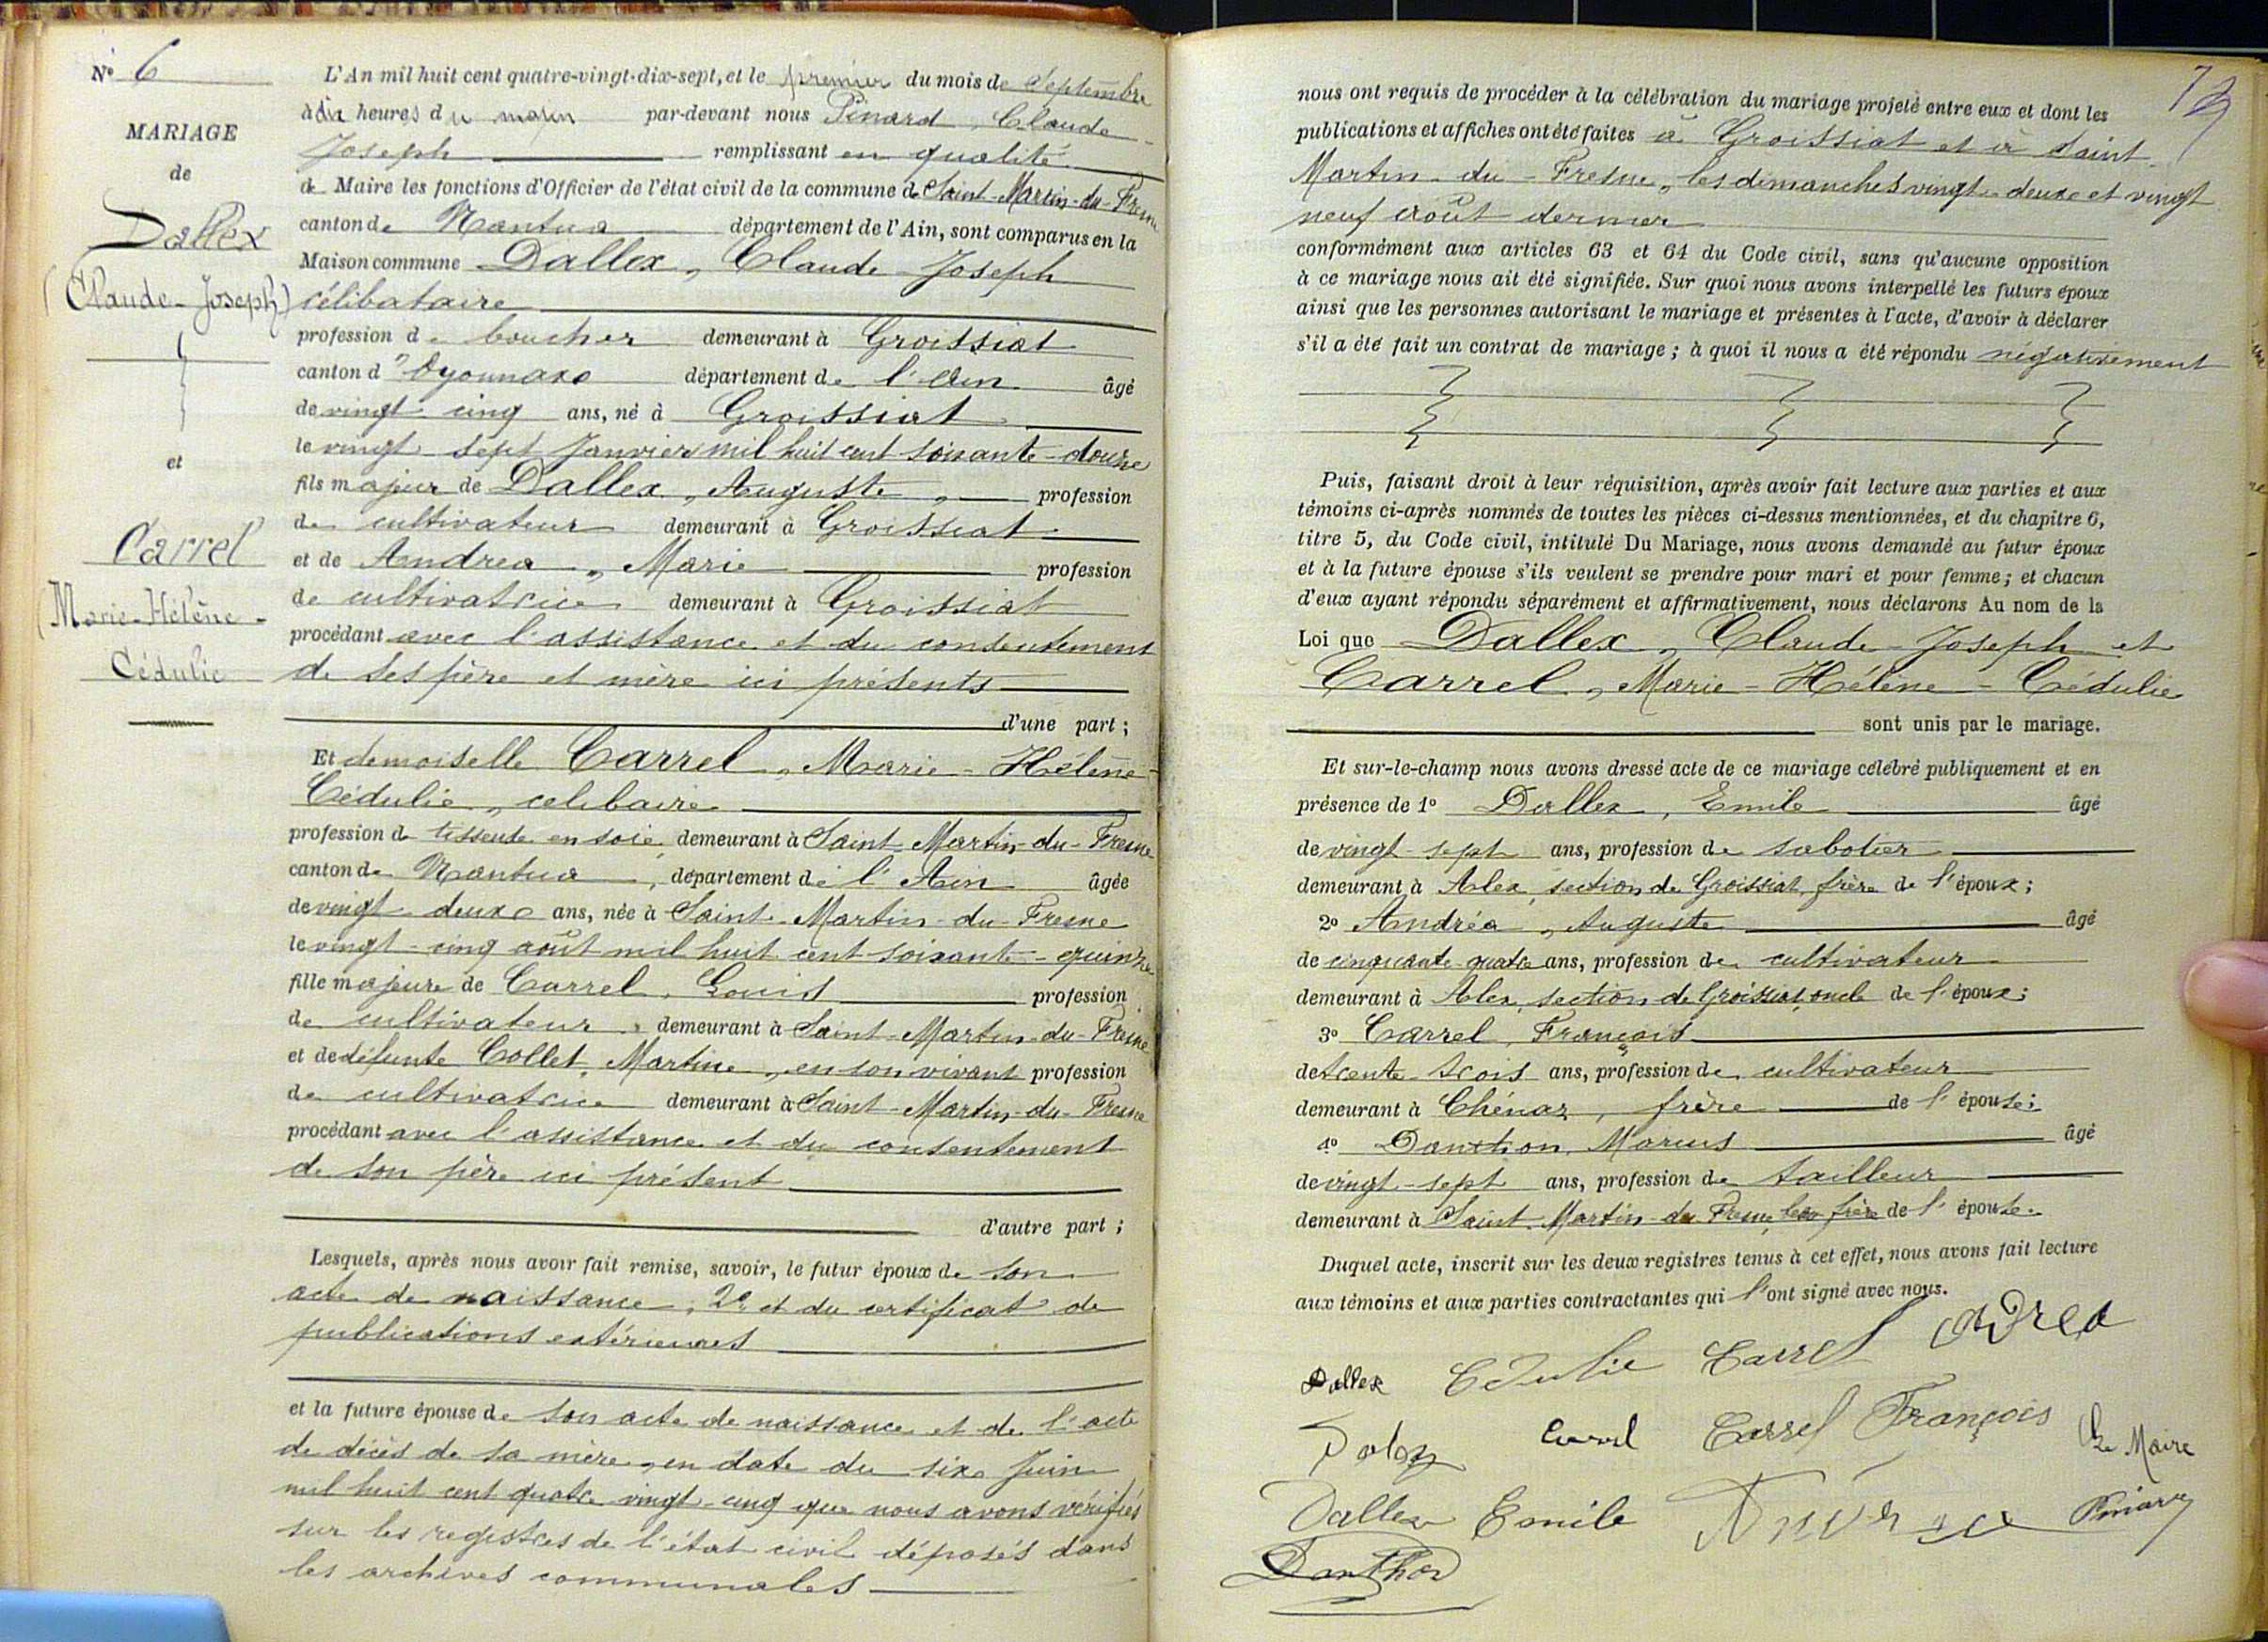 N° 6
MARIAGE
de
Dallex
(Claude-Joseph)
et
Carrel
(Marie-Hélène-
Cédulie
L'An mil huit cent quatre-vingt-dix-sept, et le premier du mois de Septembre
à dix heures du matin par-devant nous Pinard, Claude-
Joseph remplissant en qualité
de Maire les fonctions d'Officier de l'état civil de la commune de Saint-Martin-du-Fresne
canton de Nantua département de l'Ain, sont comparus en la
Maison commune Dallex, Claude-Joseph
célibataire
profession de boucher demeurant à Groissiat
canton d'Oyonnax département de l'Ain âgé
de vingt-cinq ans, né à Groissiat
le vingt-sept Janvier mil huit cent soixante-douze
fils majeur de Dallex, Auguste, profession
de cultivateur demeurant à Groissiat
et de Andrea, Marie profession
de cultivatrice demeurant à Groissiat
procédant avec l'assistance et du consentement
de ses père et mère ici présents
d'une part ;
Et demoiselle Carrel, Marie-Hélène-
Cédulie, celibaire
profession de tisseuse en soie, demeurant à Saint-Martin-du-Fresne
canton de Nantua, département de l'Ain âgée
de vingt-deux ans, née à Saint-Martin-du-Fresne
le vingt-cinq août mil huit cent soixante-quinze
fille majeure de Carrel, Louis profession
de cultivateur, demeurant à Saint-Martin-du-Fresne
et de défunte Collet, Martine, en son vivant profession
de cultivatrice demeurant à Saint-Martin-du-Fresne
procédant avec l'assistance et du consentement
de son père ici présent
d'autre part ;
Lesquels, après nous avoir fait remise, savoir, le futur époux de son
acte de naissance, 2° et du certificat de
publications extérieures
et la future épouse de son acte de naissance et de l'acte
de décès de sa mère, en date du six Juin
mil huit cent quatre vingt-cinq que nous avons vérifiés
sur les registres de l'état civil déposés dans
les archives communales
nous ont requis de procéder à la célébration du mariage projeté entre eux et dont les
publications et affiches ont été faites à Groissiat et à Saint-
Martin-du-Fresne, les dimanches vingt-deux et vingt
neuf août dernier
conformément aux articles 63 et 64 du Code civil, sans qu'aucune opposition
à ce mariage nous ait été signifiée. Sur quoi nous avons interpellé les futurs époux
ainsi que les personnes autorisant le mariage et présentes à l'acte, d'avoir à déclarer
s'il a été fait un contrat de mariage ; à quoi il nous a été répondu négativement
Puis, faisant droit à leur réquisition, après avoir fait lecture aux parties et aux
témoins ci-après nommés de toutes les pièces ci-dessus mentionnées, et du chapitre 6,
titre 5, du Code civil, intitulé Du Mariage, nous avons demandé au futur époux
et à la future épouse s'ils veulent se prendre pour mari et pour femme ; et chacun
d'eux ayant répondu séparément et affirmativement, nous déclarons Au nom de la
Loi que Dallex, Claude-Joseph et
Carrel, Marie-Hélène-Cédulie
sont unis par le mariage.
Et sur-le-champ nous avons dressé acte de ce mariage célébré publiquement et en
présence de 1° Dallex, Emile âgé
de vingt-sept ans, profession de sabotier
demeurant à Alex, section de Groissiat, frère de l'époux ;
2° Andréa, Auguste âgé
de cinquante-quatre ans, profession de cultivateur
demeurant à Alex, section de Groissiat, oncle de l'époux ;
3° Carrel, François
de trente-trois ans, profession de cultivateur
demeurant à Chénaz, frère de l'épouse ;
4° Danthon, Marius âgé
de vingt-sept ans, profession de tailleur
demeurant à Saint-Martin-du-Fresne, beau frère de l'épouse.
Duquel acte, inscrit sur les deux registres tenus à cet effet, nous avons fait lecture
aux témoins et aux parties contractantes qui l'ont signé avec nous.
Dallex Cédulie Carrel Adrea
Carrel Carrel François Le Maire
Dallex Emile Pinard
Danthon